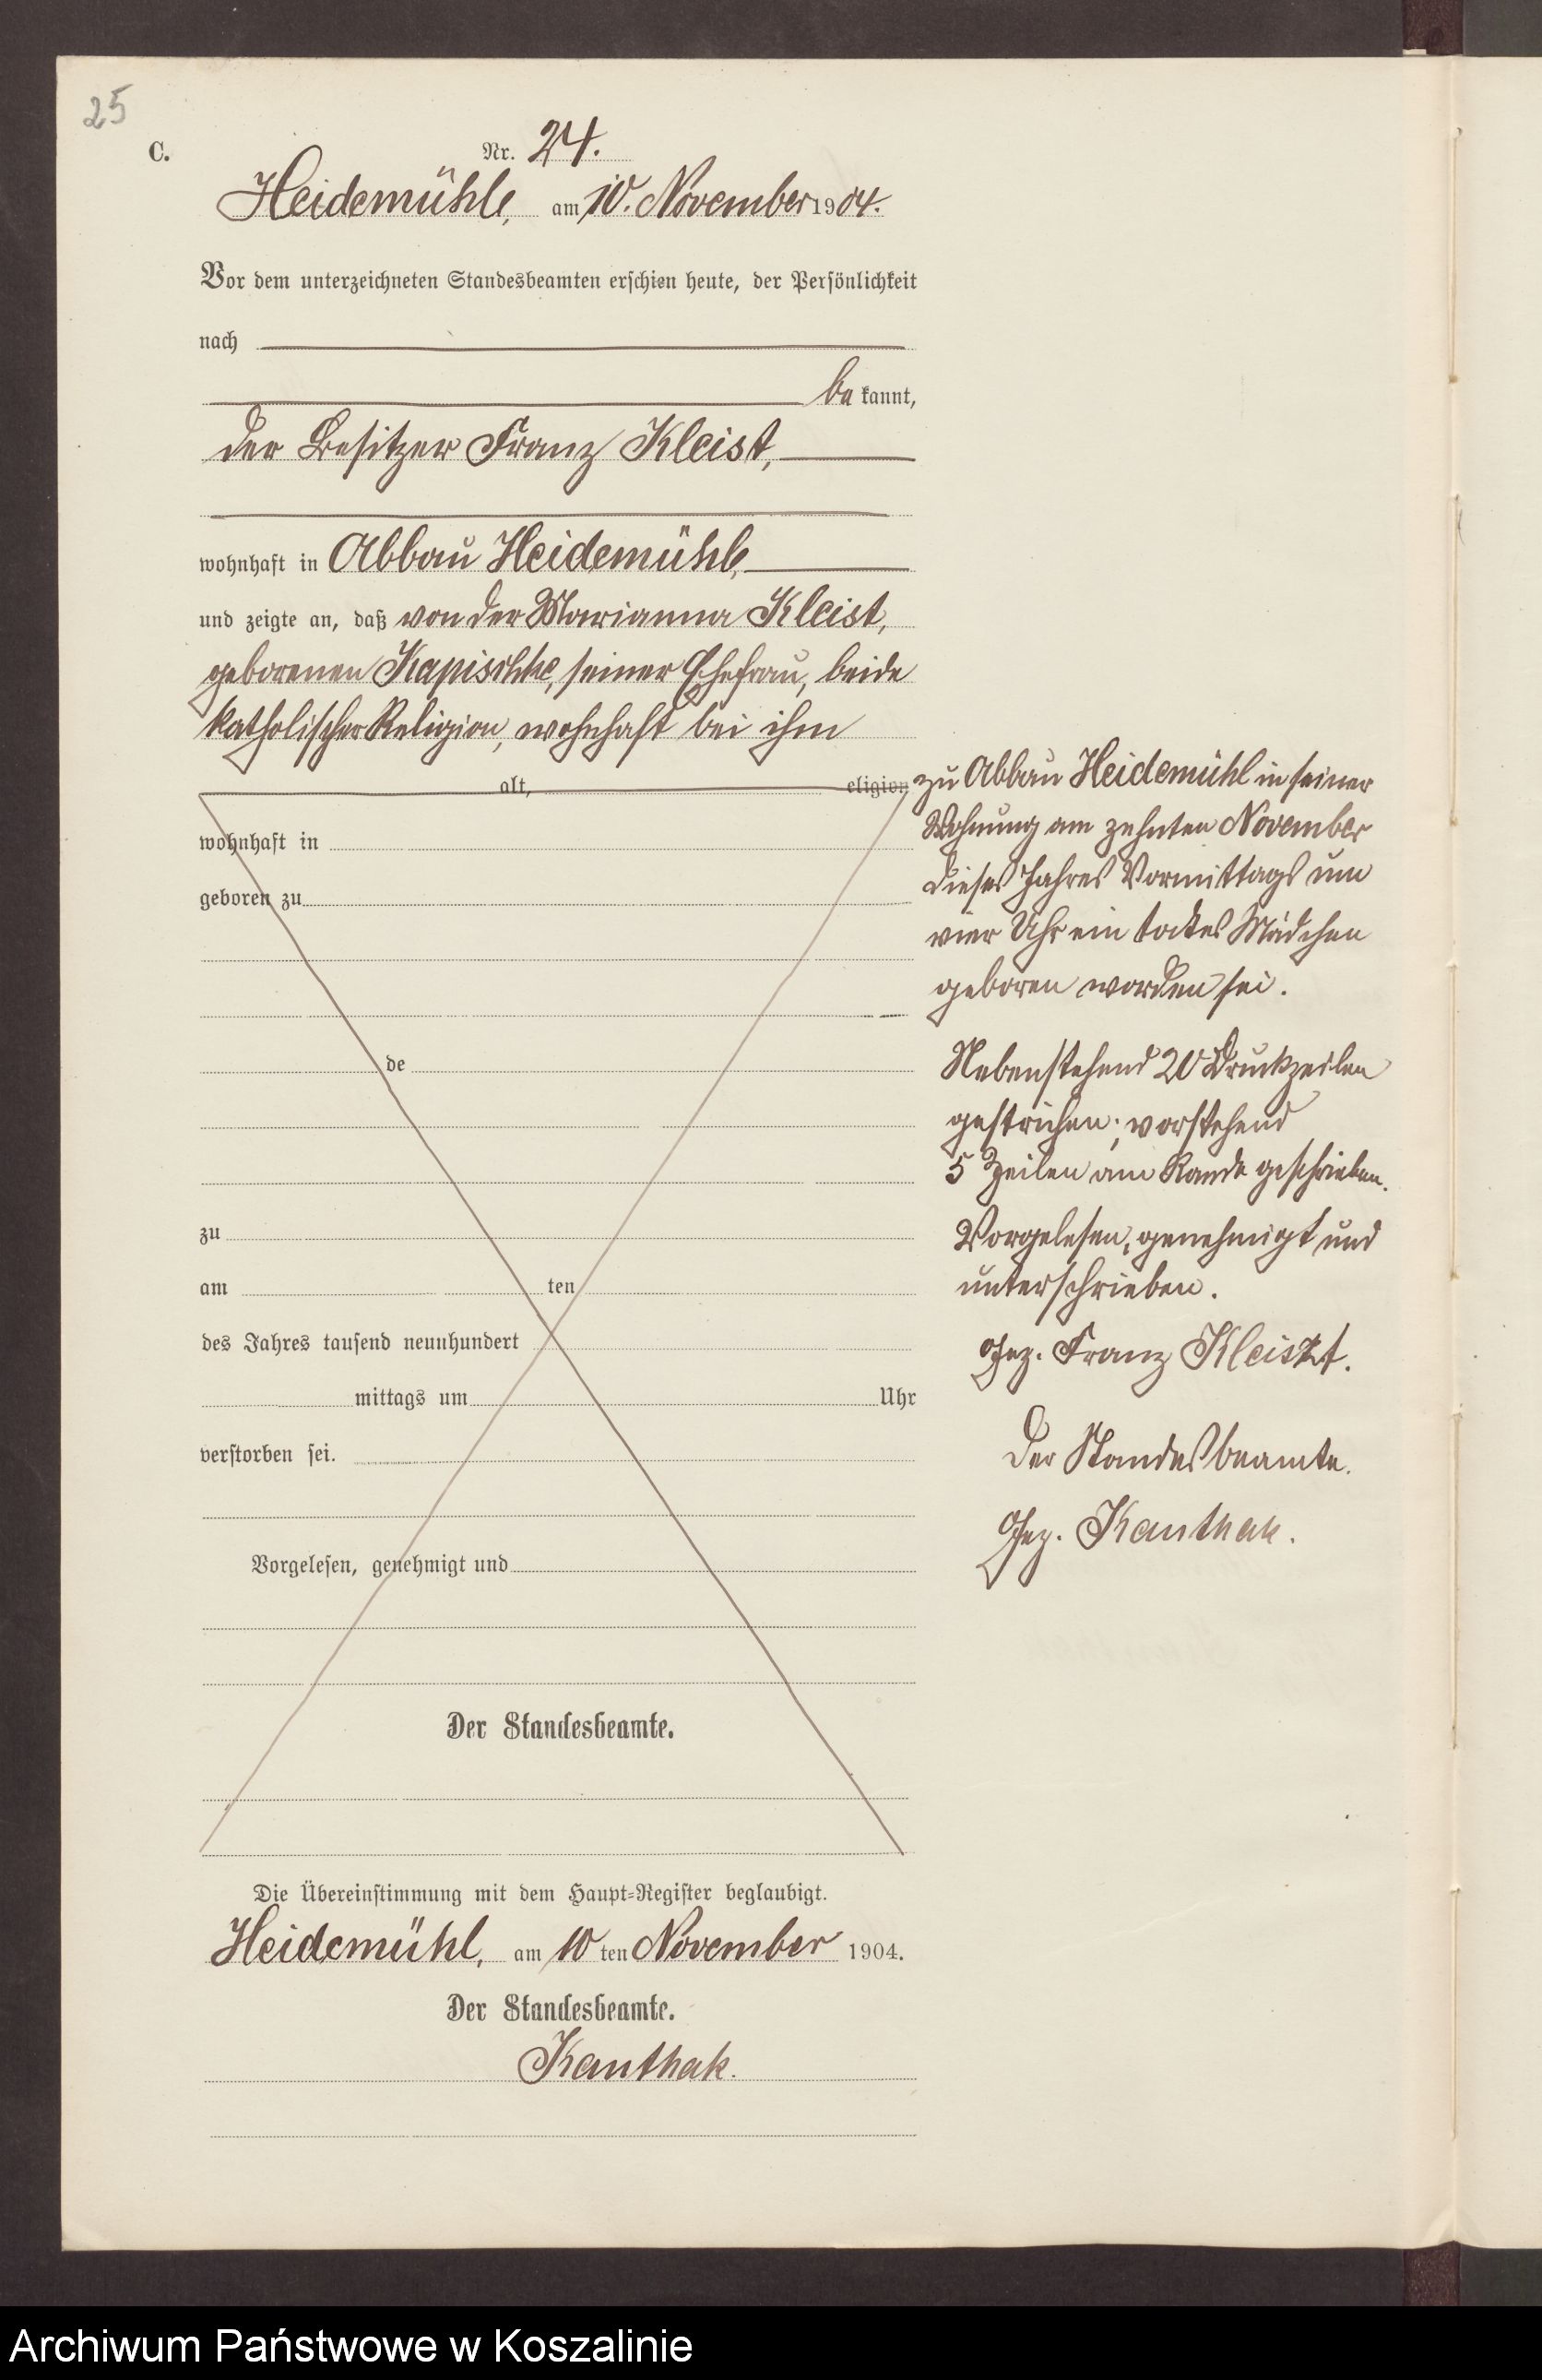 25
C.
Nr. 24.
Heidemühle, am 10. November 1904.
Vor dem unterzeichneten Standesbeamten erschien heute, der Persönlichkeit
nach
be kannt,
der Besitzer Franz Kleist,
wohnhaft in Abbau Heidemühl,
und zeigte an, daß von der Marianna Kleist,
geborenen Kapischke, seiner Ehefrau, beide
katholischer Religion, wohnhaft bei ihm
alt, eligion
wohnhaft in
geboren zu
de
zu
am ten
des Jahres tausend neunhundert
mittags um Uhr
verstorben sei.
Vorgelesen, genehmigt und
Der Standesbeamte.
zu Abbau Heidemühl in seiner
Wohnung am zehnten November
dieses Jahres Vormittags um
vier Uhr ein todtes Mädchen
geboren worden sei.
Nebenstehend 20 Druckzeilen
gestrichen; vorstehend
5 Zeilen am Rande geschrieben.
Vorgelesen, genehmigt und
unterschrieben.
Gez. Franz Kleiszt.
Der Standesbeamte.
Gez. Kanthak.
Die Übereinstimmung mit dem Haupt-Register beglaubigt.
Heidemühl, am 10 ten November 1904.
Der Standesbeamte.
Kanthak.
Archiwum Państwowe w Koszalinie